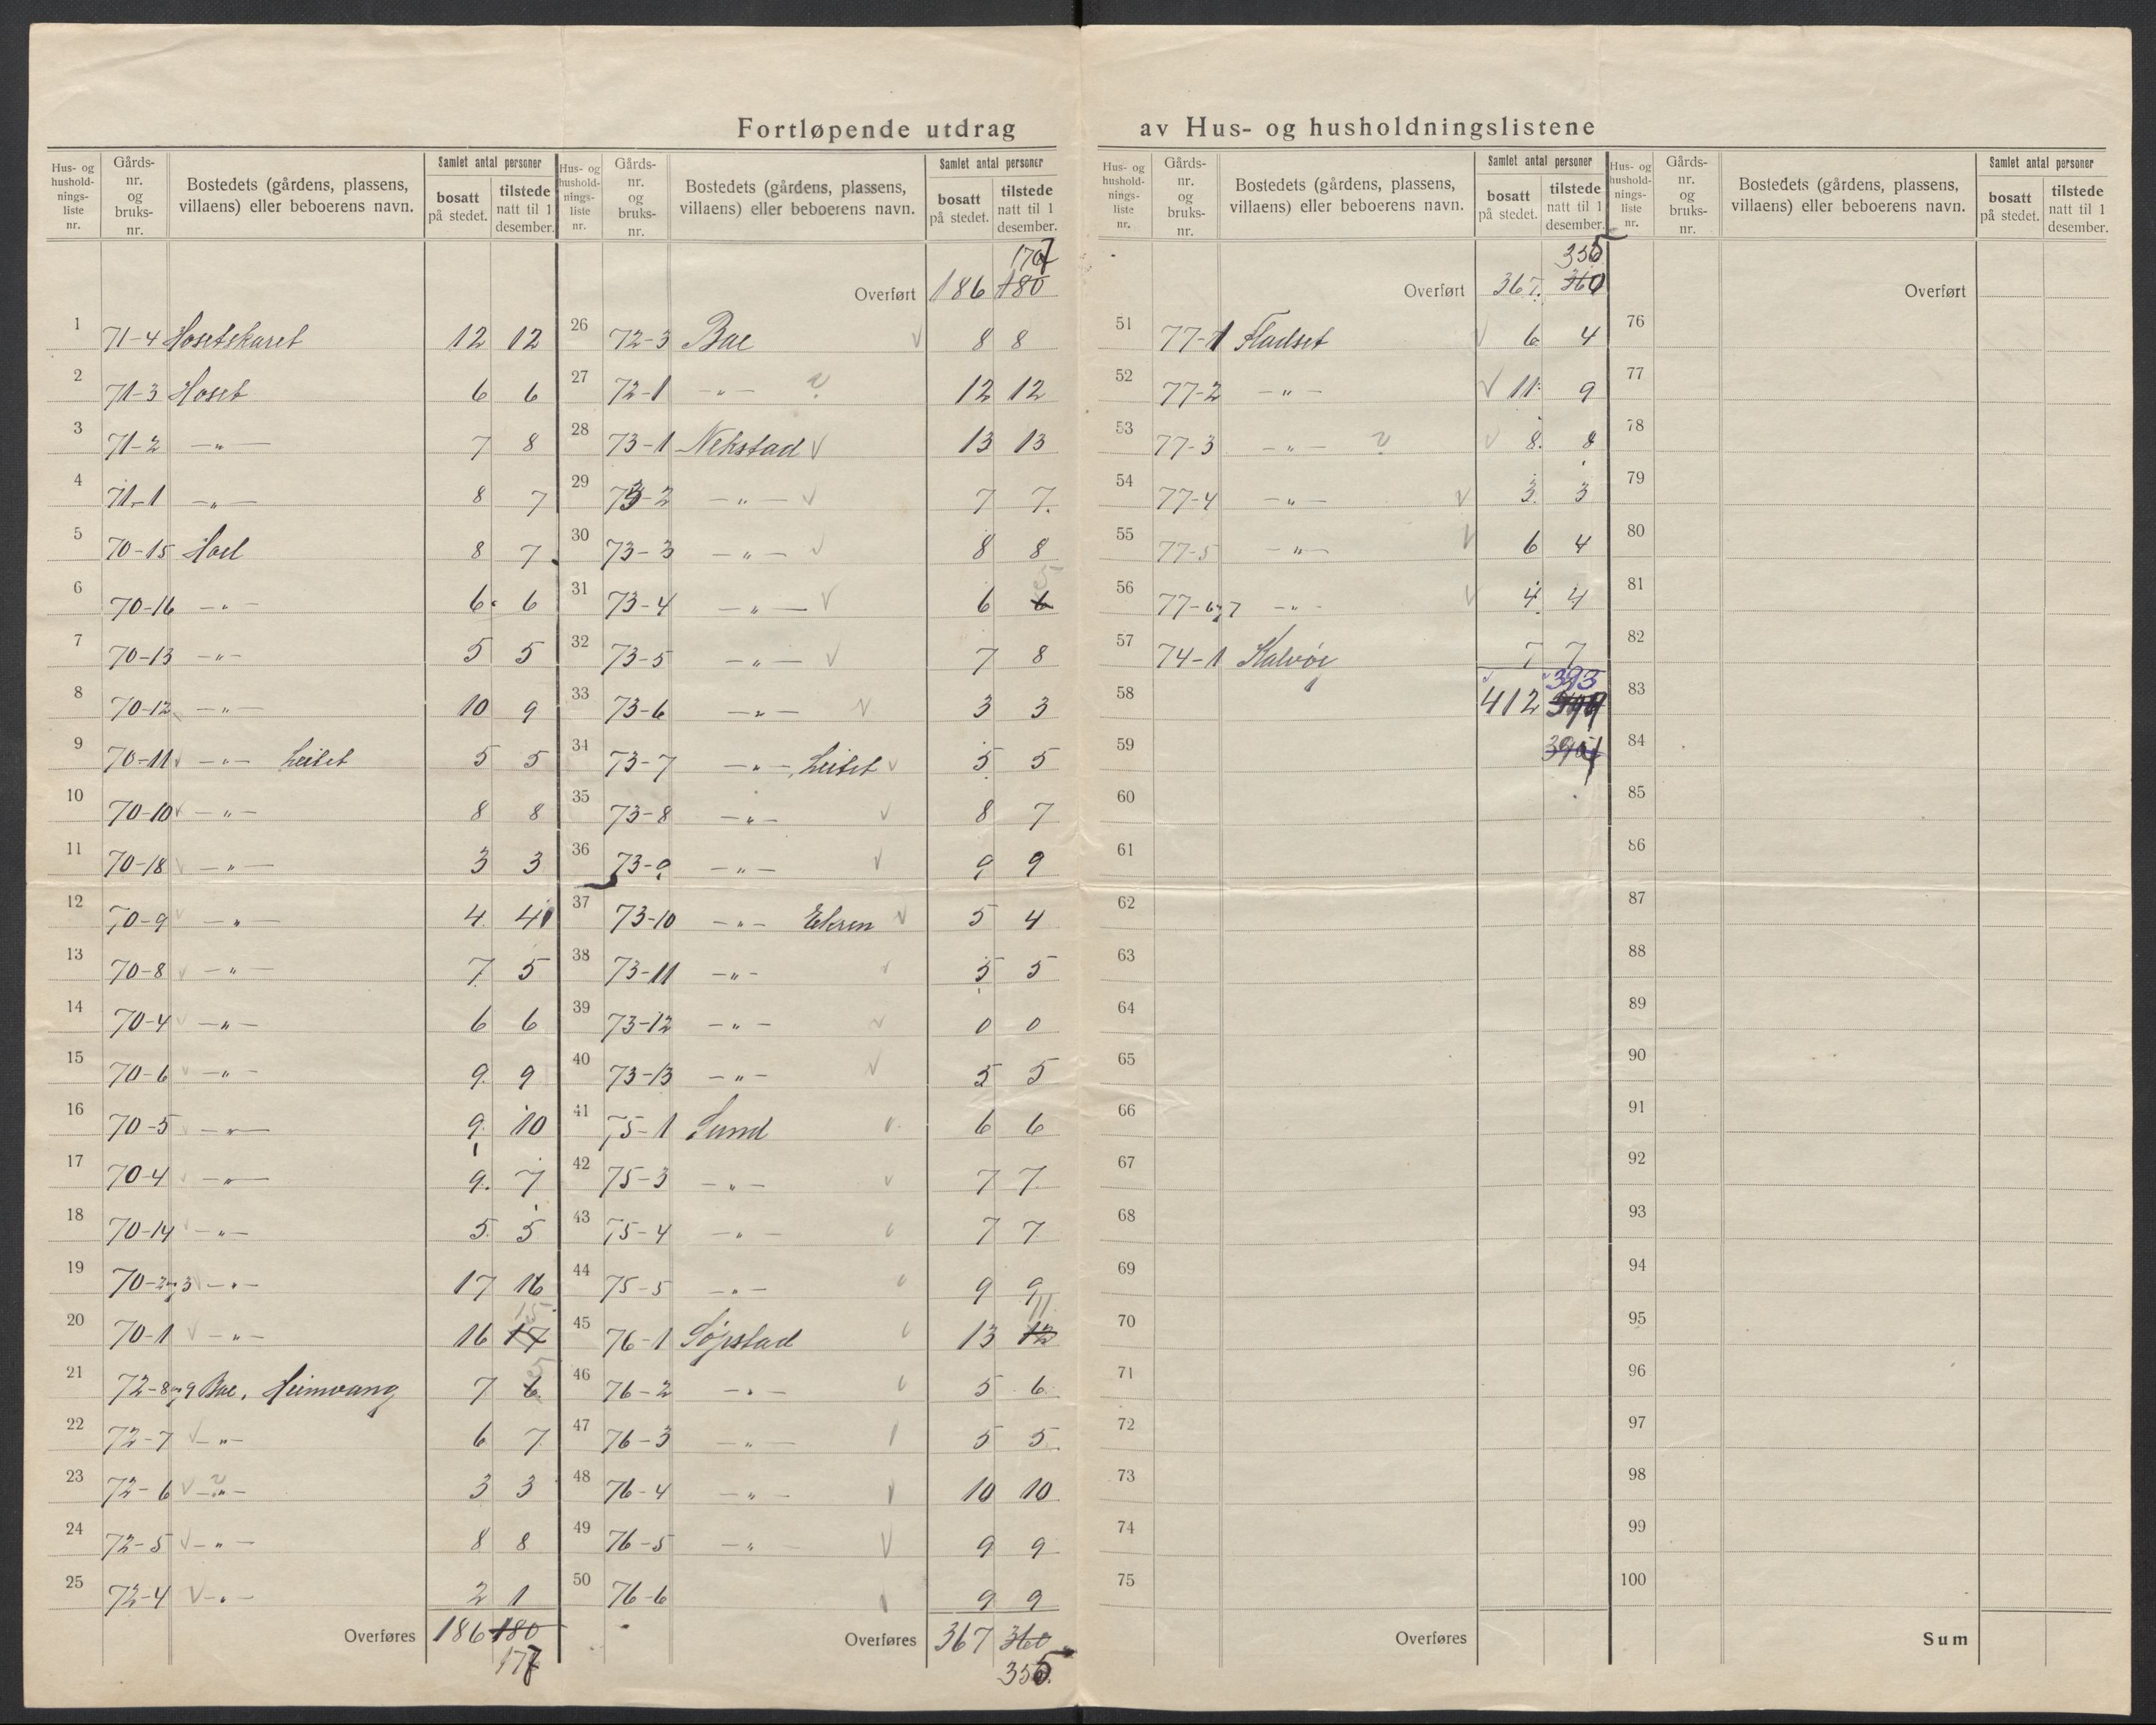 Fortløpende utdrag av Hus- og husholdningslistene
Hus- og husholdnings-liste nr. Gårds-nr. og bruks-nr. Bostedets (gårdens, plassens, villaens) eller beboerens navn. Samlet antal personer bosatt på stedet. tilstede natt til 1 desember.
1 71-4 Hosetskaret 12 12
2 71-3 Hoset 6 6
3 71-2 -"- 7 8
4 71-1 -"- 8 7
5 70-15 Hoel 8 7
6 70-16 -"- 6 6
7 70-13 -"- 5 5
8 70-12 -"- 10 9
9 70-11 -"- Leitet 5 5
10 70-10 -"- 8 8
11 70-18 -"- 3 3
12 70-9 -"- 4 4
13 70-8 -"- 7 5
14 70-4 -"- 6 6
15 70-6 -"- 9 9
16 70-5 -"- 9 10
17 70-4 -"- 9 7
18 70-14 -"- 5 5
19 70-2 og 3 -"- 17 16
20 70-1 -"- 16 17 15
21 72-8 og 9 Bae, Heimvang 7 6 5
22 72-7 -"- 6 7
23 72-6 -"- 3 3
24 72-5 -"- 8 8
25 72-4 -"- 2 1
Overføres 186 180
177
Hus- og husholdnings-liste nr. Gårds-nr. og bruks-nr. Bostedets (gårdens, plassens, villaens) eller beboerens navn. Samlet antal personer bosatt på stedet. tilstede natt til 1 desember.
Overført 186 180
26 72-3 Bae 8 8
27 72-1 -"- 12 12
28 73-1 Nekstad 13 13
29 73-2 -"- 7 7
30 73-3 -"- 8 8
31 73-4 -"- 6 6 5
32 73-5 -"- 7 8
33 73-6 -"- 3 3
34 73-7 -"- Leitet 5 5
35 73-8 -"- 8 7
36 73-9 -"- 9 9
37 73-10 -"- Ekren 5 4
38 73-11 -"- 5 5
39 73-12 -"- 0 0
40 73-13 -"- 5 5
41 75-1 Sund 6 6
42 75-3 -"- 7 7
43 75-4 -"- 7 7
44 75-5 -"- 9 9
45 76-1 Søpstad 13 12 11
46 76-2 -"- 5 6
47 76-3 -"- 5 5
48 76-4 -"- 10 10
49 76-5 -"- 9 9
50 76-6 9 9
Overføres 367 360
355
Hus- og husholdnings-liste nr. Gårds-nr. og bruks-nr. Bostedets (gårdens, plassens, villaens) eller beboerens navn. Samlet antal personer bosatt på stedet. tilstede natt til 1 desember.
355
Overført 367 360
51 77-1 Fladset 6 4
52 77-2 -"- 11 9
53 77-3 -"- 8 8
54 77-4 -"- 3 3
55 77-5 -"- 6 4
56 77-6 og 7 -"- 4 4
57 74-1 Kalvøy 7 7
393
58 412
59
60
61
62
63
64
65
66
67
68
69
70
71
72
73
74
75
Overføres
Hus- og husholdnings-liste nr. Gårds-nr. og bruks-nr. Bostedets (gårdens, plassens, villaens) eller beboerens navn. Samlet antal personer bosatt på stedet. tilstede natt til 1 desember.
Overført
76
77
78
79
80
81
82
83
84
85
86
87
88
89
90
91
92
93
94
95
96
97
98
99
100
Sum